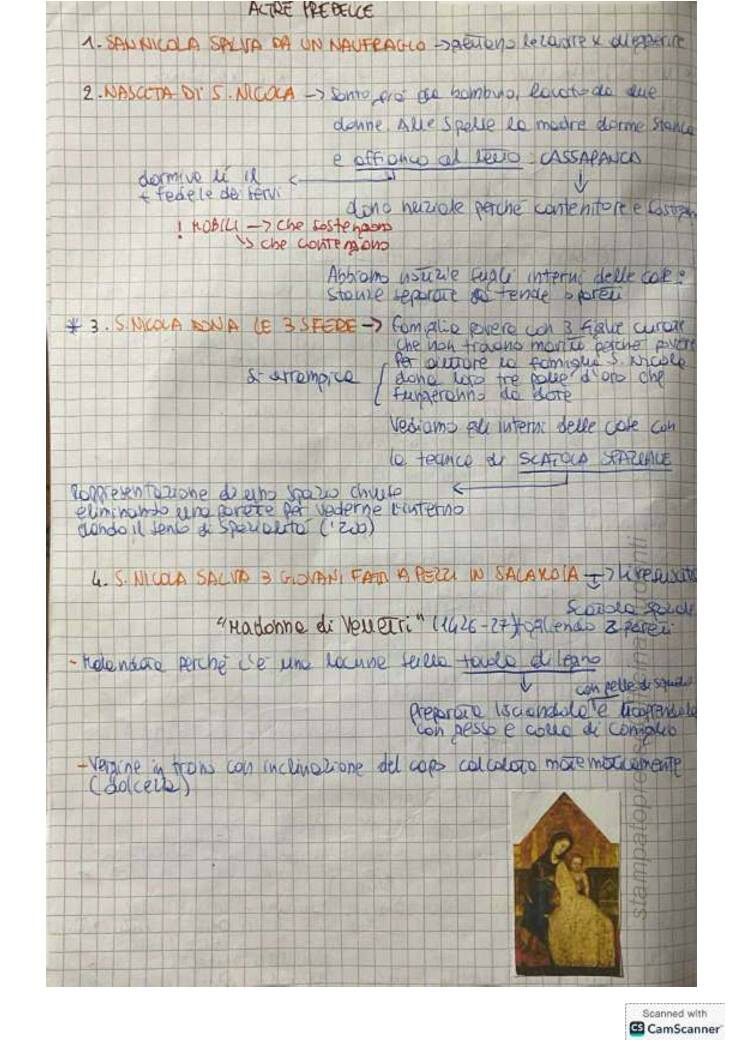 ALTRE PREDELLE
1. SAN NICOLA SALVA DA UN NAUFRAGIO → gettano le casse x alleggerire
2. NASCITA DI S. NICOLA → Santo, già da bambino, lavato da due
donne. Alle spalle la madre dorme stanca
e affianco al letto: CASSAPANCA
dormiva lì il
+ fedele dei servi
dono nuziale perché contenitore e
! MOBILI → che sostengono
↳ che contengono
Abbiamo notizie sugli interni delle case:
Stanze separate da tende o pareti
* 3. S. NICOLA DONA LE 3 SFERE → Famiglia povera con 3 figlie
che non trovano marito perché povere
Per aiutare la famiglia S. Nicola
Si arrampica
dona loro tre palle d'oro che
fungeranno da dote
Vediamo gli interni delle case con
la tecnica di SCATOLA SPAZIALE
Rappresentazione di uno spazio chiuso
eliminando una parete per vederne l'interno
dando il senso di spazialità ('200)
4. S. NICOLA SALVA 3 GIOVANI FATTI A PEZZI IN SALAMOIA → li resuscita
Scatola spaziale
"Madonna di Velletri" (1426-27) togliendo 2 pareti
- perché c'è una lacuna sulla tavola di legno
con pelle di squalo
preparata lisciandola e ricoprendola
con gesso e colla di coniglio
- Vergine in trono con inclinazione del capo calcolata matematicamente
(dolcezza)
Scanned with
CS CamScanner